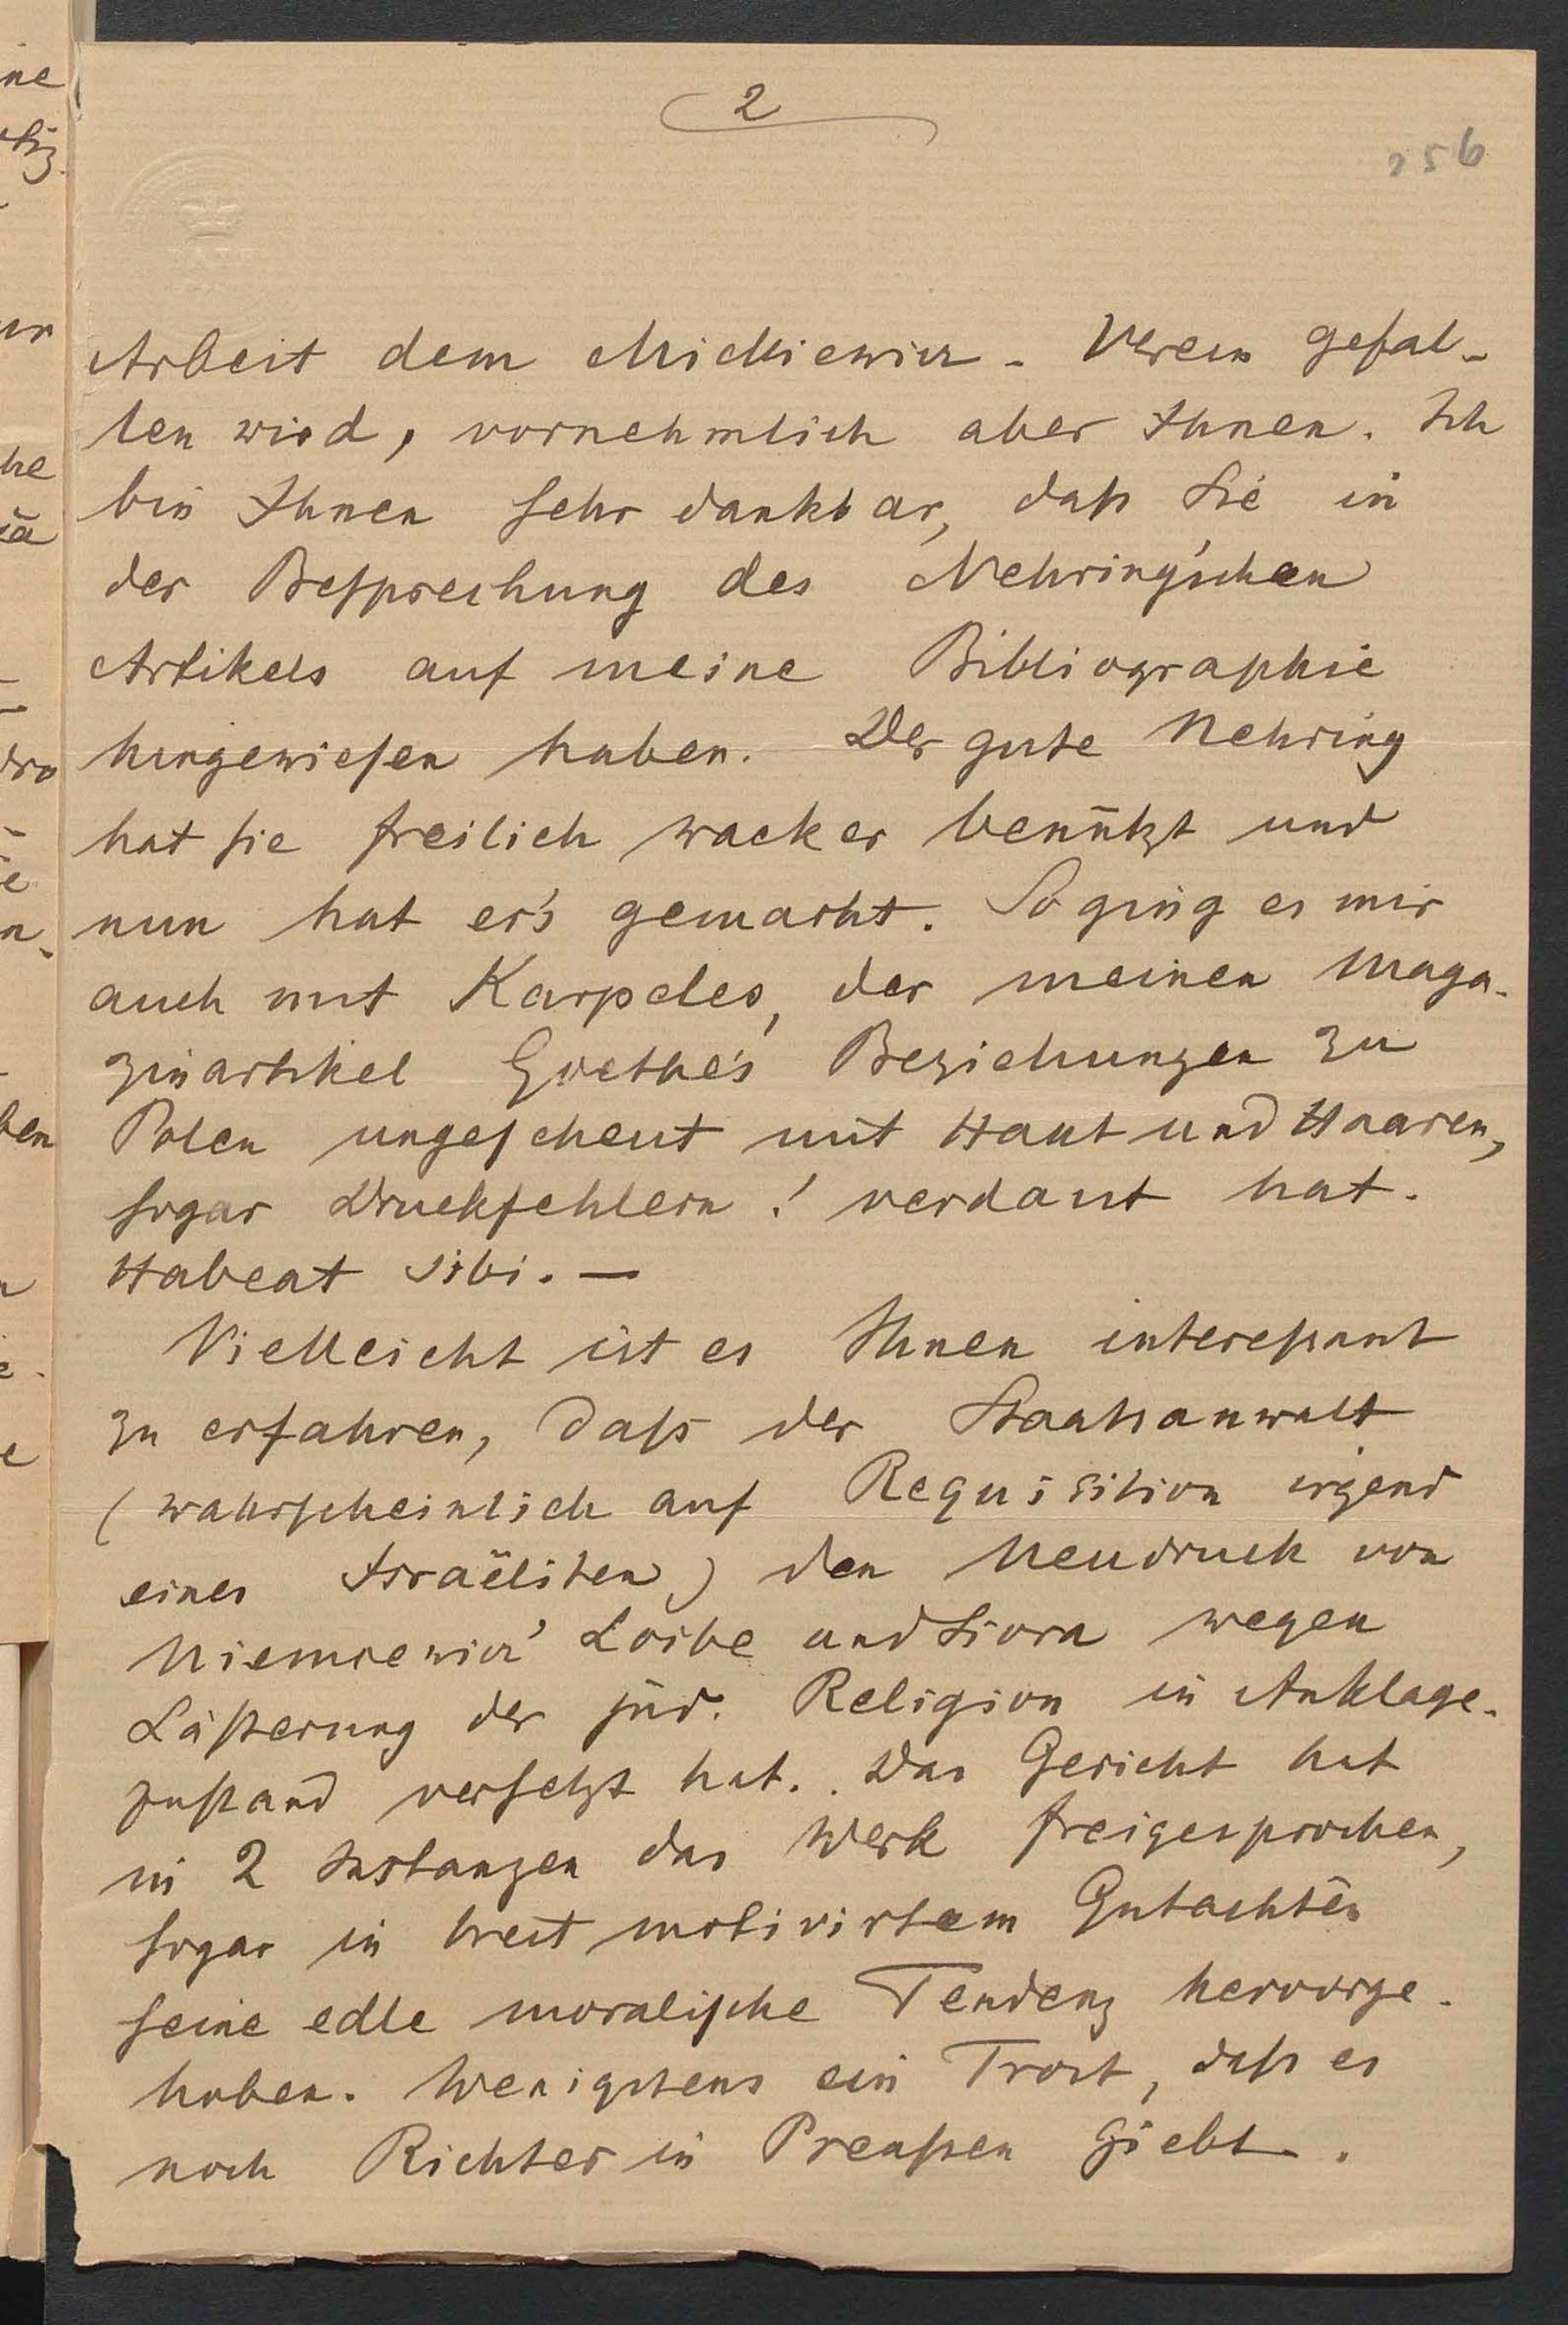 2
256
Arbeit dem Mickiewicz-Verein gefal-
len wird, vornehmlich aber Ihnen. Ich
bin Ihnen sehr dankbar, daß Sie in
der Besprechung des Nehring'schen
Artikels auf meine Bibliographie
hingewiesen haben. Der gute Nehring
hat sie freilich wacker benützt und
nun hat er's gemacht. So ging es mir
auch mit Karpeles, der meinen Maga-
zinartikel Goethe's Beziehungen zu
Polen ungescheut mit Haut und Haaren,
sogar Druckfehlern! verdaut hat.
Habeat sibi. —
Vielleicht ist es Ihnen interessant
zu erfahren, daß der Staatsanwalt
(wahrscheinlich auf Requisition irgend
eines Israëliten) den Neudruck von
Niemcewicz' Loibe und Siora wegen
Lästerung der jüd. Religion in Anklage-
zustand versetzt hat. Das Gericht hat
in 2 Instanzen das Werk freigesprochen,
sogar in breit motivirtem Gutachten
seine edle moralische Tendenz hervorge-
hoben. Wenigstens ein Trost, daß es
noch Richter in Preußen giebt.